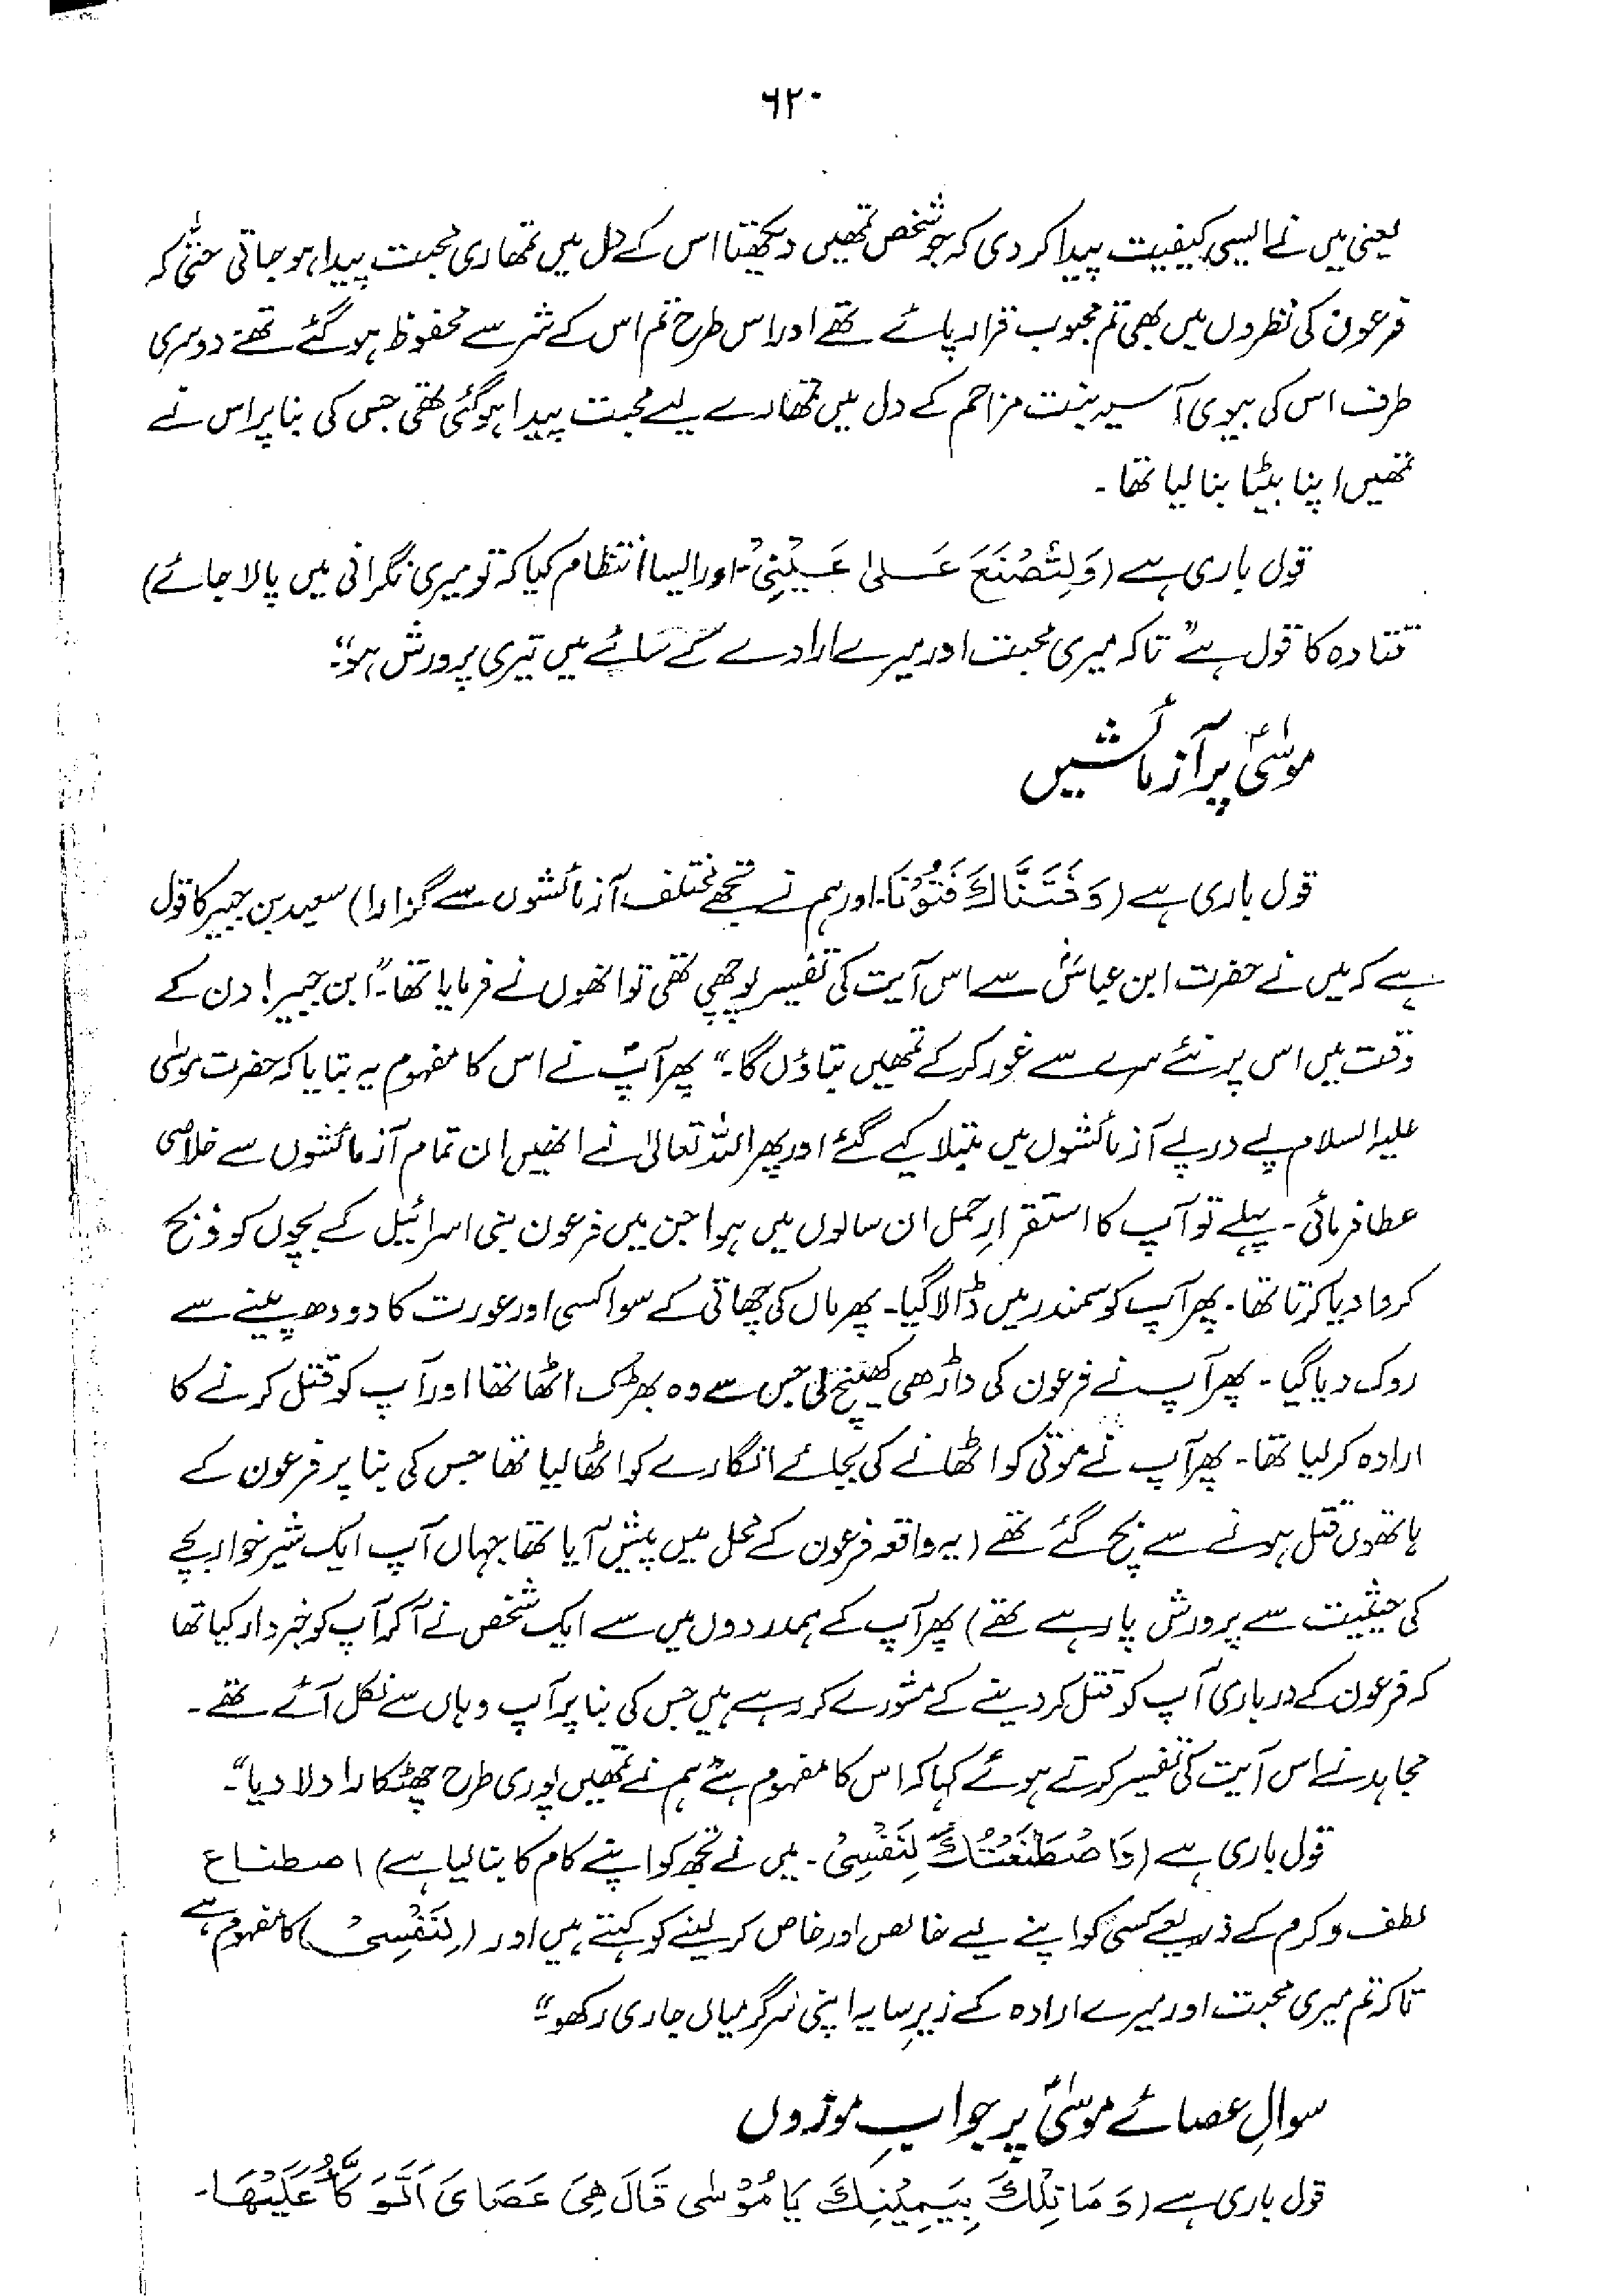 ۶۲۰
یعنی میں نے ایسی کیفیت پیدا کر دی کہ جو شخص تمھیں دیکھتا اس کے دل میں تمھاری محبت پیدا ہو جاتی حتیٰ کہ
فرعون کی نظروں میں بھی تم محبوب قرار پائے تھے اور اس طرح تم اس کے شر سے محفوظ ہو گئے تھے دوسری
طرف اس کی بیوی آسیہ بنت مزاحم کے دل میں تمھارے لیے محبت پیدا ہو گئی تھی جس کی بنا پر اس نے
تمھیں اپنا بیٹا بنا لیا تھا۔
قول باری ہے (وَلِتُصْنَعَ عَلیٰ عَیْنِیْ۔ اور ایسا انتظام کیا کہ تو میری نگرانی میں پالا جائے)
قتادہ کا قول ہے "تاکہ میری محبت اور میرے ارادے کے سائے میں تیری پرورش ہو"۔
موسیٰؑ پر آزمائشیں
قول باری ہے (وَفَتَنَّاكَ فُتُوْنًا۔ اور ہم نے تجھے مختلف آزمائشوں سے گزارا) سعید بن جبیر کا قول
ہے کہ میں نے حضرت ابن عباسؓ سے اس آیت کی تفسیر پوچھی تھی تو انھوں نے فرمایا تھا۔ "ابن جبیر! دن کے
وقت میں اس پر نئے سرے سے غور کر کے تمھیں بتاؤں گا۔" پھر آپؓ نے اس کا مفہوم یہ بتایا کہ حضرت موسیٰ
علیہ السلام پے در پے آزمائشوں میں مبتلا کیے گئے اور پھر اللہ تعالیٰ نے انھیں ان تمام آزمائشوں سے خلاصی
عطا فرمائی۔ پہلے تو آپ کا استقرارِ حمل ان سالوں میں ہوا جن میں فرعون بنی اسرائیل کے بچوں کو ذبح
کروا دیا کرتا تھا۔ پھر آپ کو سمندر میں ڈالا گیا۔ پھر ماں کی چھاتی کے سوا کسی اور عورت کا دودھ پینے سے
روک دیا گیا۔ پھر آپ نے فرعون کی داڑھی کھینچ لی جس سے وہ بھڑک اٹھا تھا اور آپ کو قتل کرنے کا
ارادہ کر لیا تھا۔ پھر آپ نے موتی کو اٹھانے کی بجائے انگارے کو اٹھا لیا تھا جس کی بنا پر فرعون کے
ہاتھوں قتل ہونے سے بچ گئے تھے (یہ واقعہ فرعون کے محل میں پیش آیا تھا جہاں آپ ایک شیر خوار بچے
کی حیثیت سے پرورش پا رہے تھے) پھر آپ کے ہمدردوں میں سے ایک شخص نے آ کر آپ کو خبردار کیا تھا
کہ فرعون کے درباری آپ کو قتل کر دینے کے مشورے کر رہے ہیں جس کی بنا پر آپ وہاں سے نکل آئے تھے۔
مجاہد نے اس آیت کی تفسیر کرتے ہوئے کہا کہ اس کا مفہوم ہے "ہم نے تمھیں پوری طرح چھٹکارا دلا دیا"۔
قول باری ہے (وَاصْطَنَعْتُكَ لِنَفْسِیْ۔ میں نے تجھ کو اپنے کام کا بنا لیا ہے) اصطناع
لطف و کرم کے ذریعے کسی کو اپنے لیے خالص اور خاص کر لینے کو کہتے ہیں اور (لِنَفْسِیْ) کا مفہوم ہے
تاکہ تم میری محبت اور میرے ارادہ کے زیرِ سایہ اپنی سرگرمیاں جاری رکھو"
سوالِ عصائے موسیٰؑ پر جوابِ موزوں
قول باری ہے (وَمَا تِلْكَ بِیَمِیْنِكَ یَا مُوْسٰی قَالَ هِیَ عَصَایَ اَتَوَكَّأُ عَلَیْهَا۔